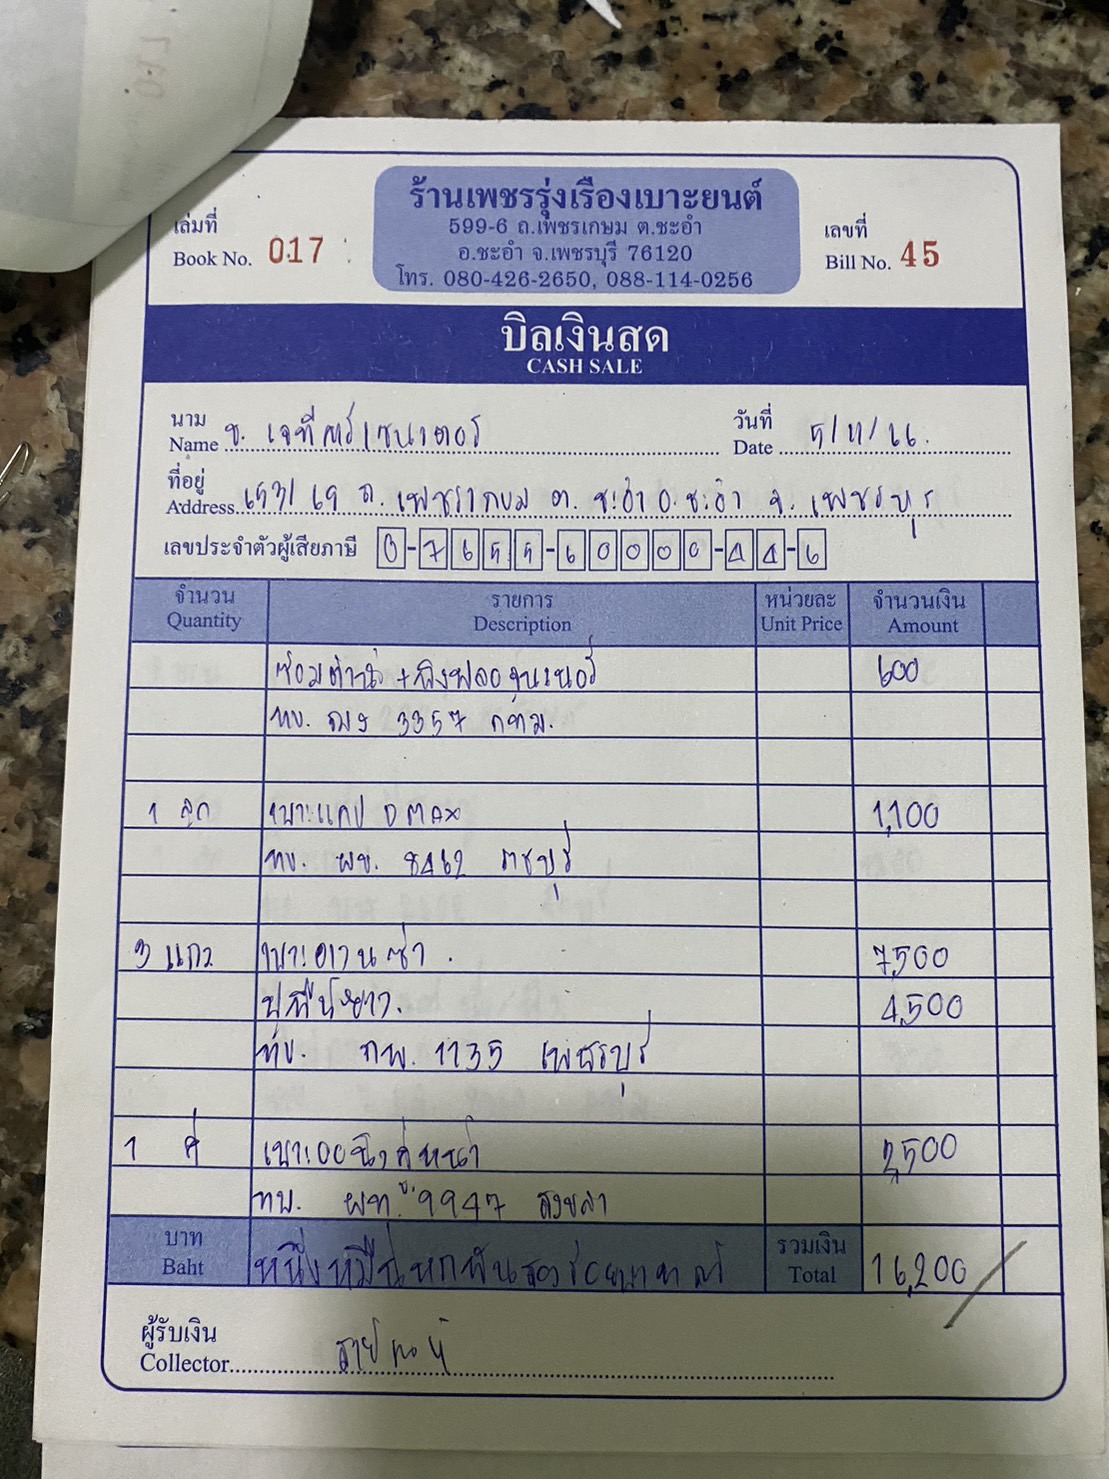 ร้านเพชรรุ่งเรืองเบาะยนต์
599-6 ถ.เพชรเกษม ต.ชะอำ
อ.ชะอำ จ.เพชรบุรี 76120
โทร. 080-426-2650, 088-114-0256
เล่มที่
Book No. 017
เลขที่
Bill No. 45
บิลเงินสด
CASH SALE
นาม
Name บ. เจที
วันที่
Date 5/11/66.
ที่อยู่
Address 653/69 ถ. เพชรเกษม ต. ชะอำ อ. ชะอำ จ. เพชรบุรี
เลขประจำตัวผู้เสียภาษี 0-7655-60000-44-6
จำนวน รายการ หน่วยละ จำนวนเงิน
Quantity Description Unit Price Amount
ซ่อม 600
ทบ. 3357 กทม.
1 ลูก เบาะแคป D MAX 1,100
ทบ. ผข. 8462 ราชบุรี
3 แถว เบาะอแวนซ่า . 7,500
4,500
ทบ. กพ. 1135 เพชรบุรี
1 คู่ คู่หน้า 2,500
ทบ. 9947 สงขลา
บาท
Baht หนึ่งหมื่นหกพันสองร้อยบาท
รวมเงิน
Total 16,200
ผู้รับเงิน
Collector